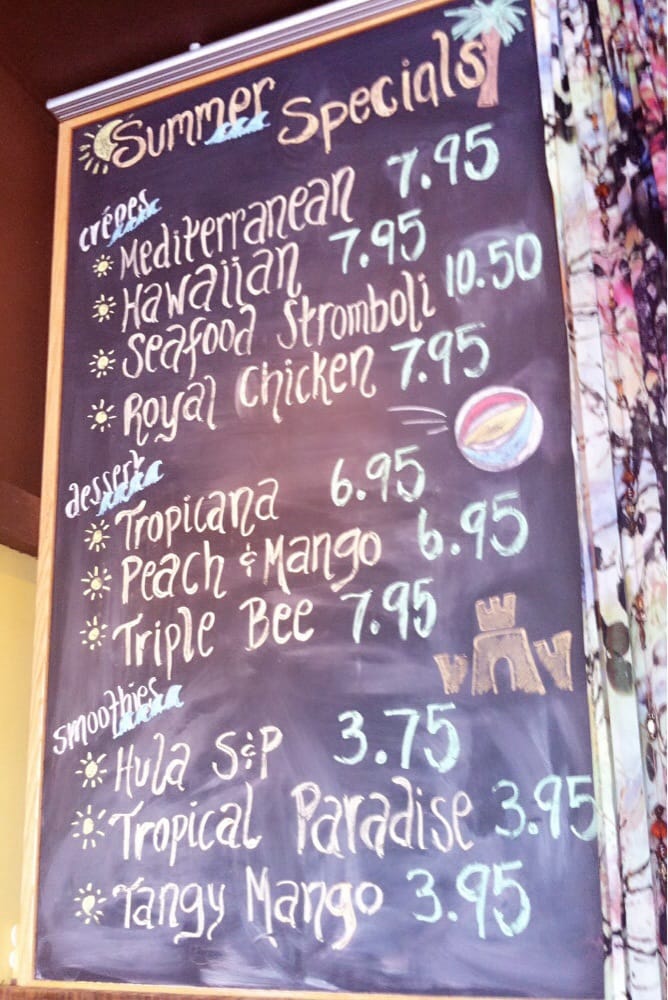 Summer Specials
crépes
Mediterranean 7.95
Hawaiian 7.95
Seafood Stromboli 10.50
Royal Chicken 7.95
dessert
Tropicana 6.95
Peach & Mango 6.95
Triple Bee 7.95
smoothies
Hula S&P 3.75
Tropical Paradise 3.95
Tangy Mango 3.95